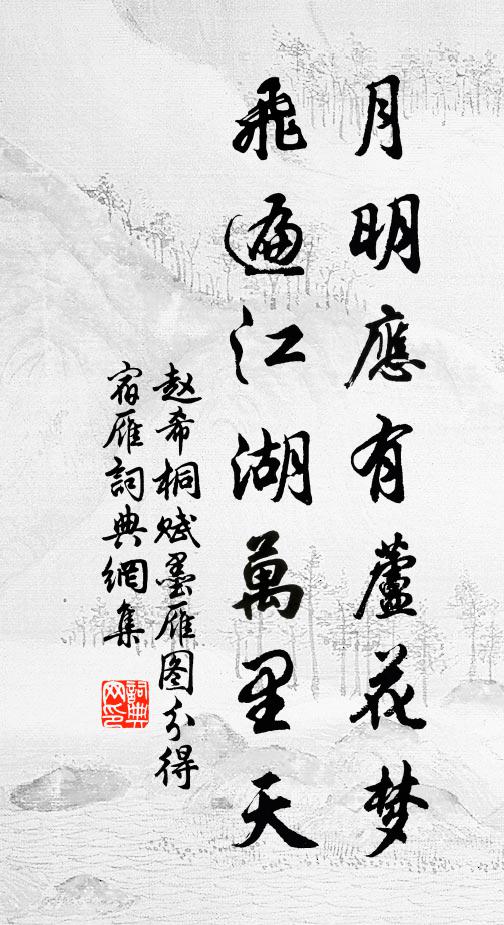 月明應有蘆花梦
飛遍江湖萬里天
赵希桐赋墨雁图分得
宿雁詞典網集
詞典网印